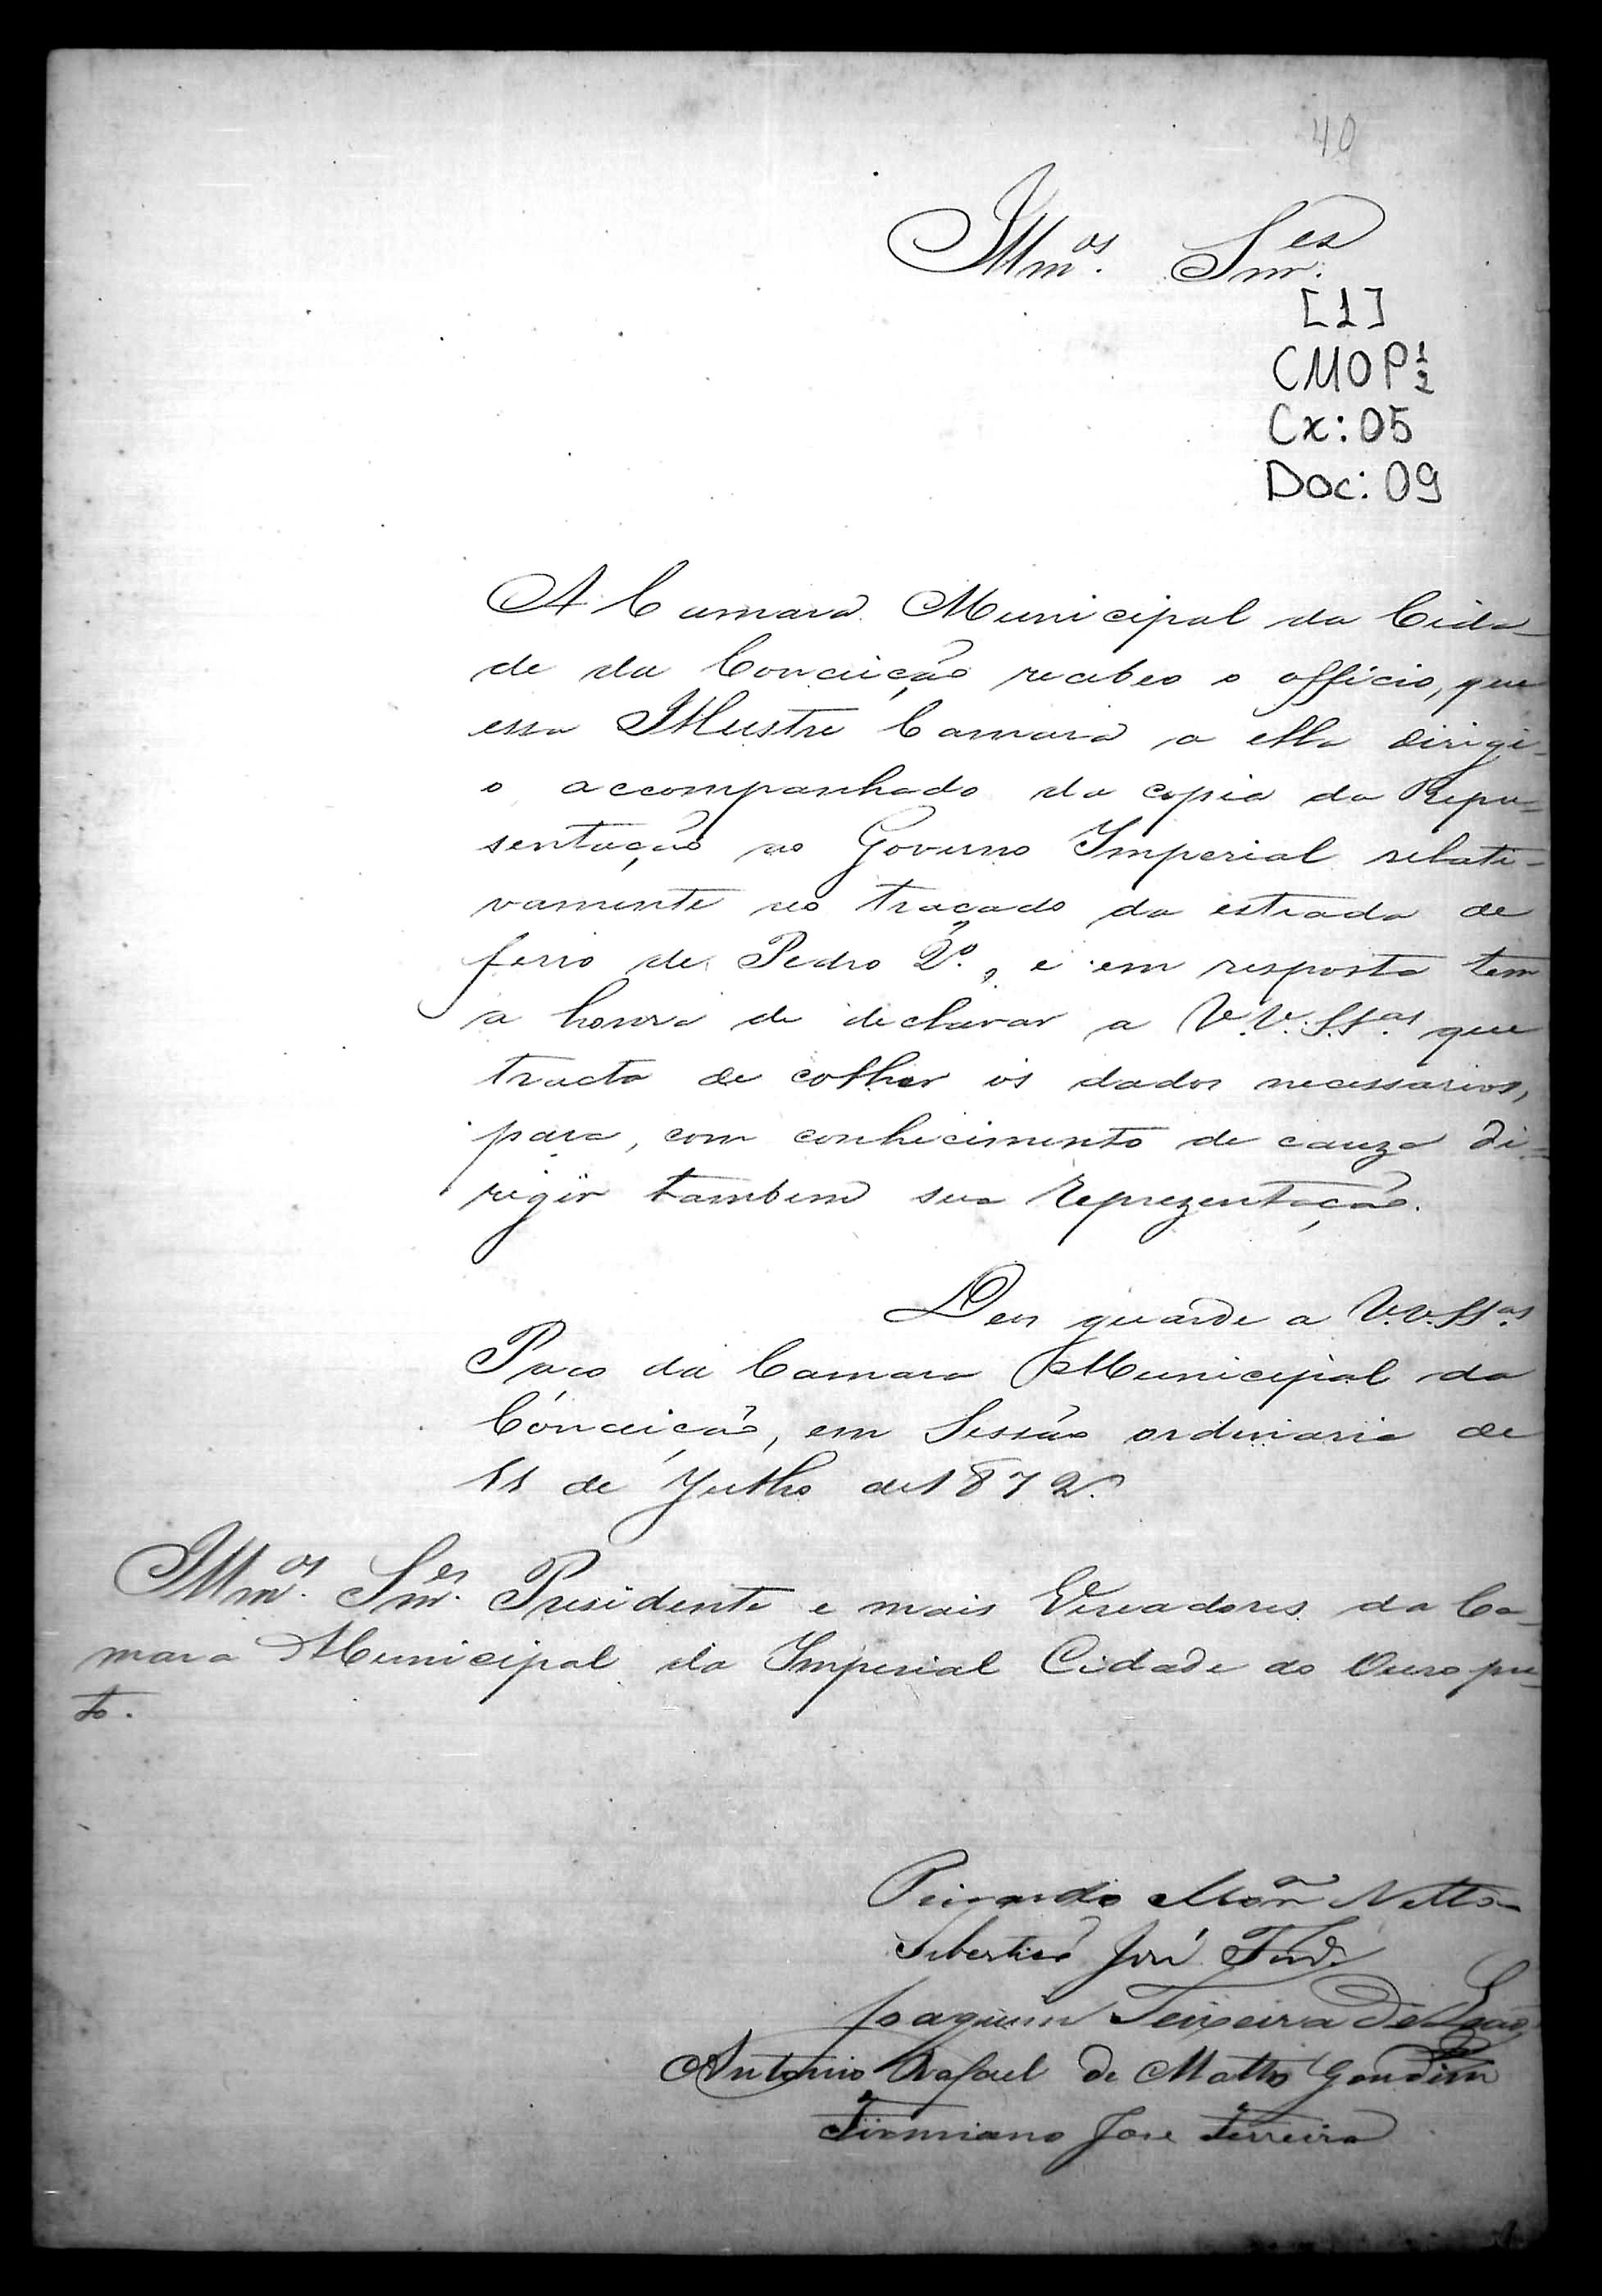 40
Illmos. Snres.
[1]
CMOP 1/2
Cx: 05
Doc: 09
A Camara Municipal da Cida-
de da Conceição recebeo o officio, que
essa Illustre Camara a ella dirigi-
o accompanhado da copia da Repre-
sentação ao Governo Imperial relati-
vamente ao traçado da estrada de
ferro de Pedro 2º., e em resposta tem
a honra de declarar a V.V. S.Sas. que
tracta de colher os dados necessarios,
para, com conhecimento de cauza di-
rigir tambem sua reprezentação.
Deos guarde a V.V. SSas.
Paço da Camara Municipal da
Conceição, em Sessão ordinaria de
11 de Julho de 1872.
Illmos. Snres. Presidente e mais Vereadores da Ca-
mara Municipal da Imperial Cidade do Ouro pre-
to.
Netto
José
Joaquim Teixeira de
Antonio Rafael de Mattos Gondim
Firmiano Jose Ferreira